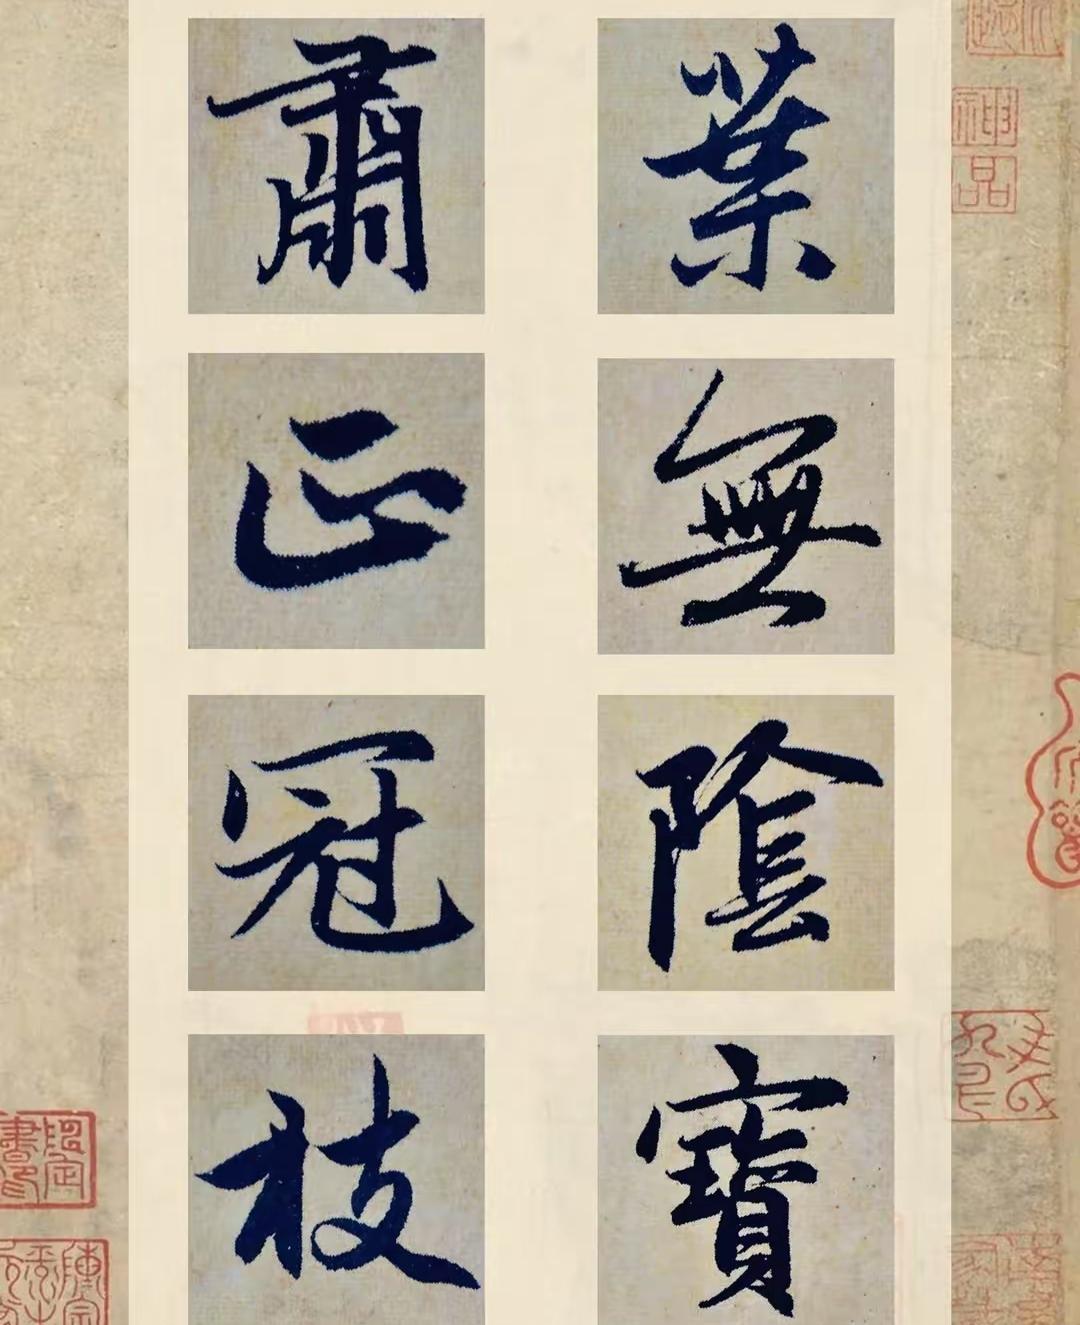 葉無陰寶
肅正冠枝
神品